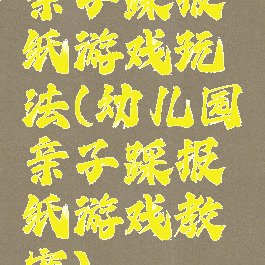 亲子踩报
纸游戏玩
法(幼儿园
亲子踩报
纸游戏教
案)